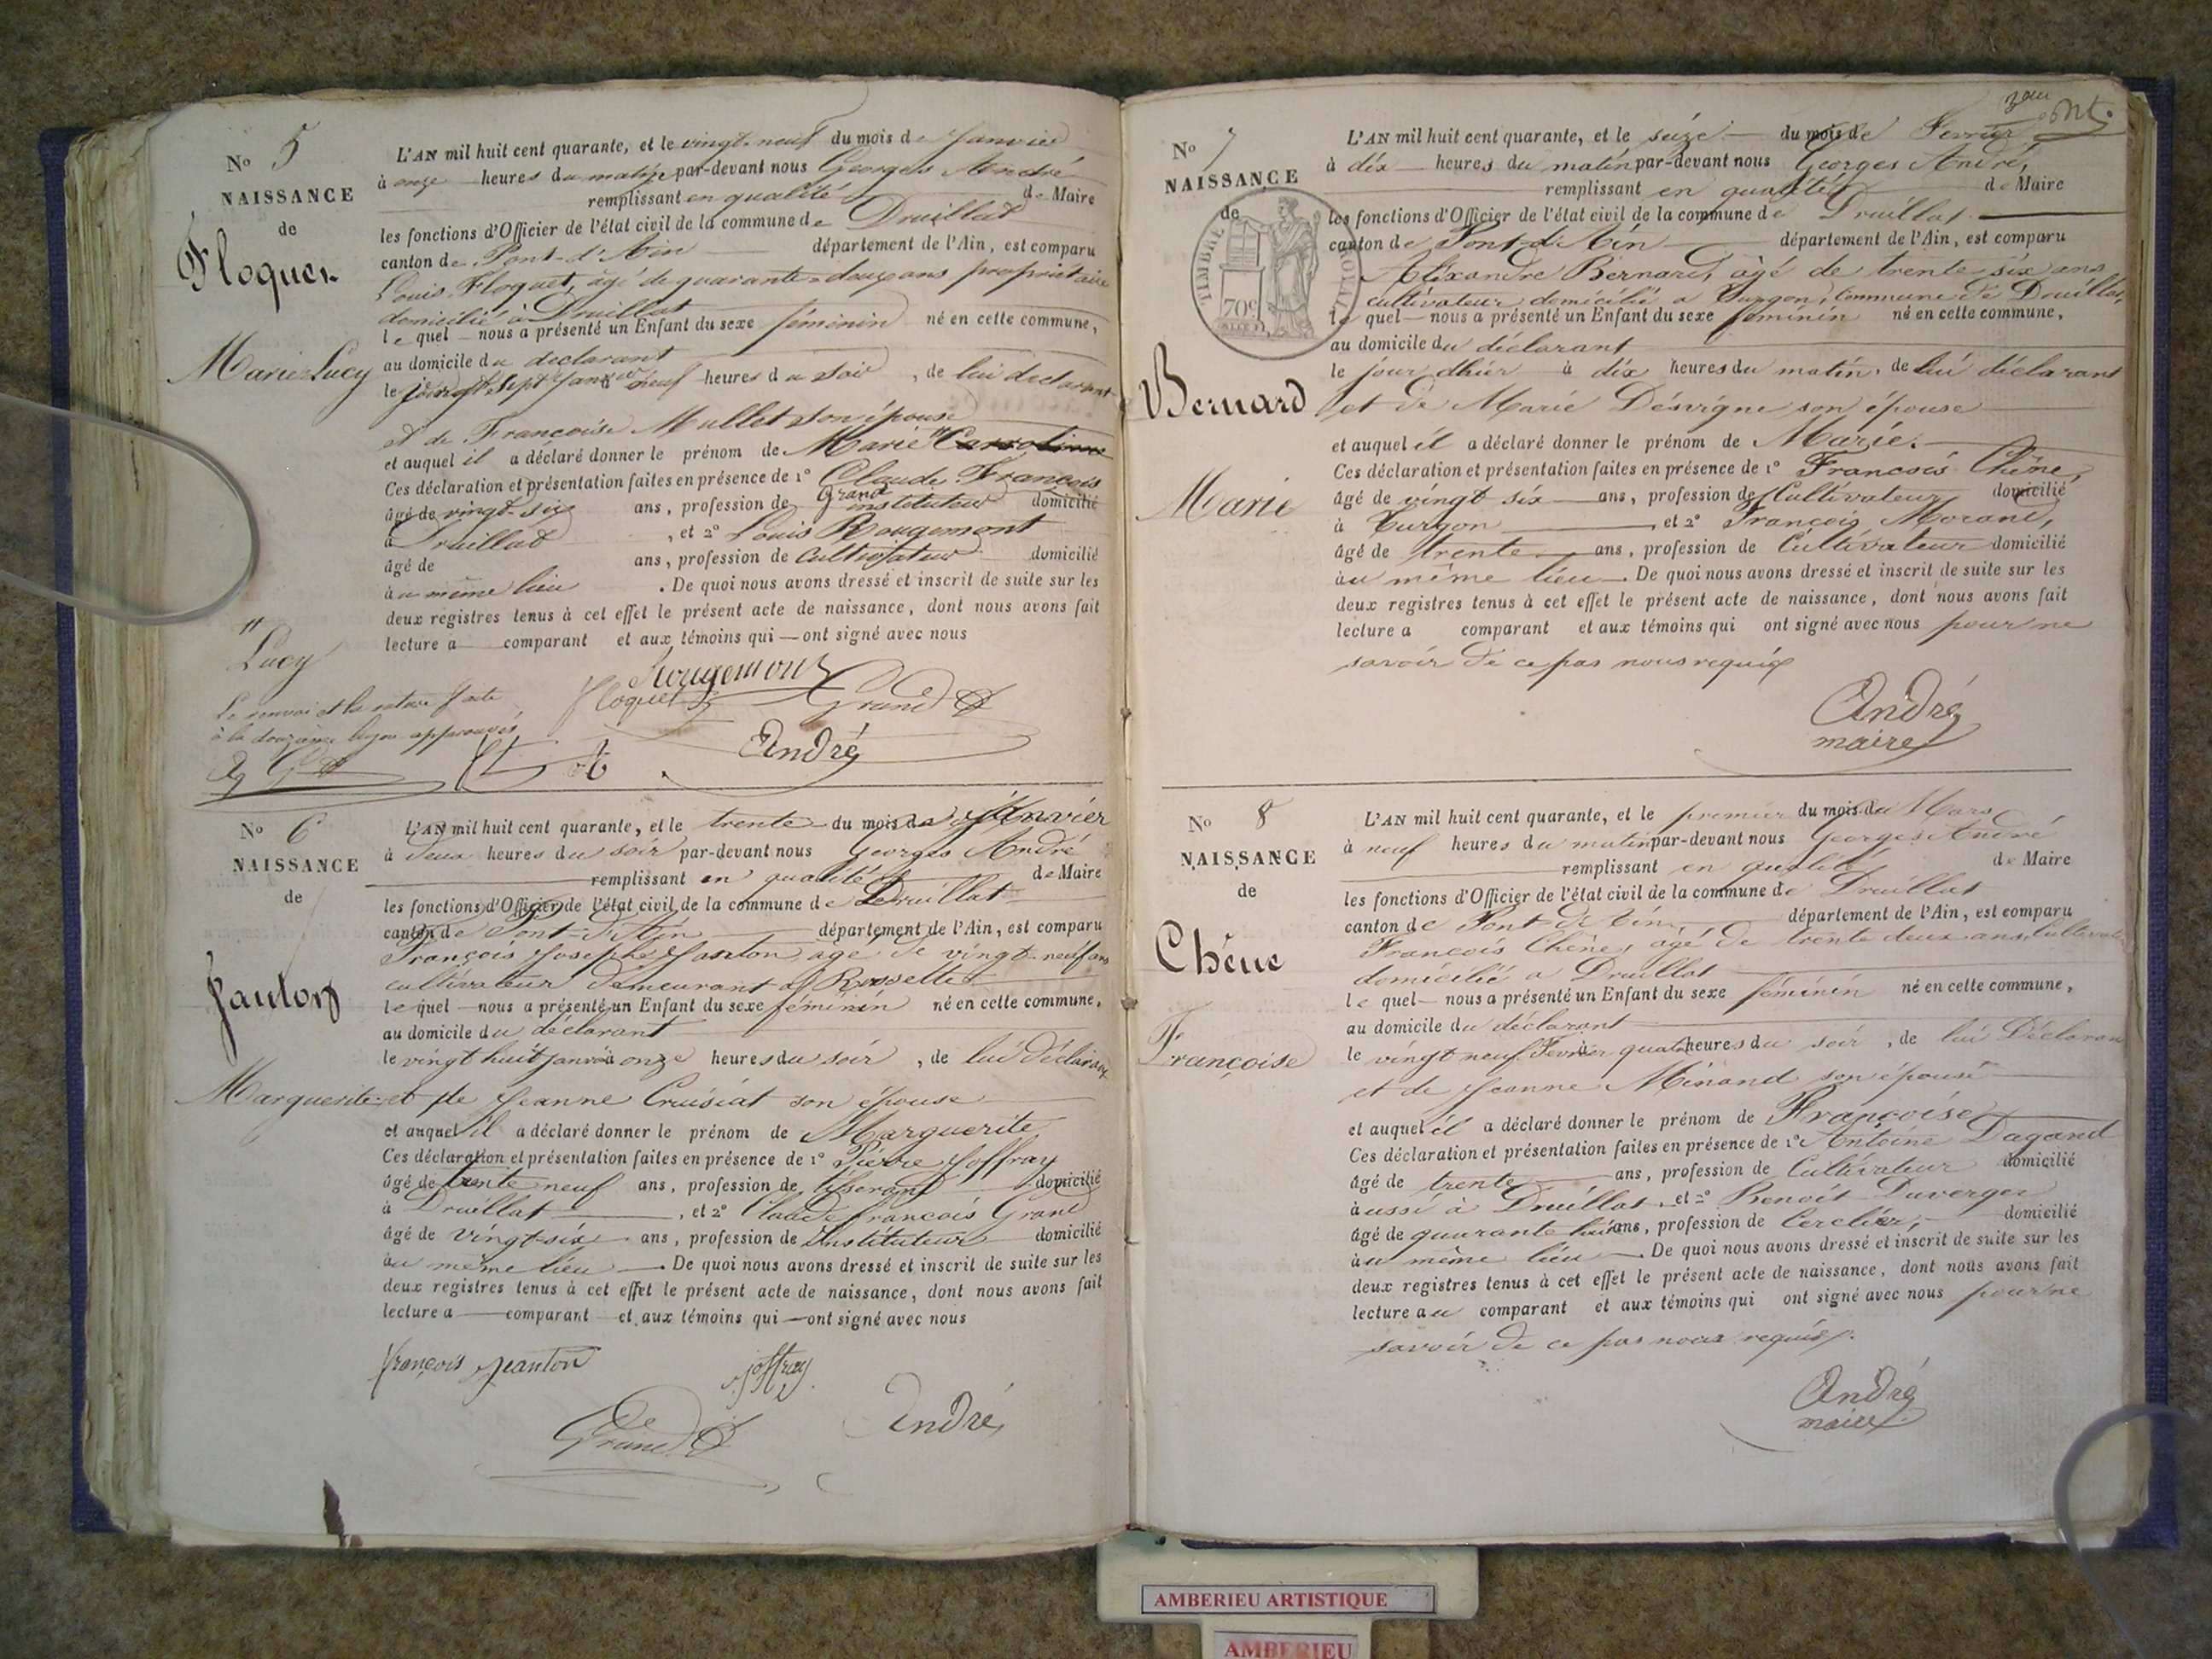 No 5
NAISSANCE
de
Floquet
Marie Lucy
L'AN mil huit cent quarante, et le vingt-neuf du mois de Janvier
à onze heures du matin par-devant nous Georges André
remplissant en qualité de Maire
les fonctions d'Officier de l'état civil de la commune de Druillat
canton de Pont-d'Ain département de l'Ain, est comparu
Louis Floquet, âgé de quarante-douze ans propriétaire
domicilié à Druillat
le quel nous a présenté un Enfant du sexe féminin né en cette commune,
au domicile du déclarant
le vingt sept Janvier neuf heures du soir, de lui déclarant
et de Françoise Mullet son épouse
et auquel il a déclaré donner le prénom de Marie
Ces déclaration et présentation faites en présence de 1° Claude François
Grand
âgé de vingt-six ans, profession de instituteur domicilié
à Druillat, et 2° Louis Rougemont
âgé de ans, profession de Cultivateur domicilié
au même lieu. De quoi nous avons dressé et inscrit de suite sur les
deux registres tenus à cet effet le présent acte de naissance, dont nous avons fait
lecture a comparant et aux témoins qui ont signé avec nous
" Lucy
Le renvoi et la rature faite
à la douzième ligne approuvés
Rougemont
Floquet Grand
André
No 6
NAISSANCE
de
Janton
Marguerite
L'AN mil huit cent quarante, et le trente du mois de Janvier
à deux heures du soir par-devant nous Georges André
remplissant en qualité de Maire
les fonctions d'Officier de l'état civil de la commune de Druillat
canton de Pont-d'Ain département de l'Ain, est comparu
François Joseph Janton âgé de vingt-neuf ans
cultivateur demeurant à Rossettes
le quel nous a présenté un Enfant du sexe féminin né en cette commune,
au domicile du déclarant
le vingt huit janvier à onze heures du soir, de lui déclarant
et de Jeanne Cruisiat son épouse
et auquel il a déclaré donner le prénom de Marguerite
Ces déclaration et présentation faites en présence de 1° Pierre Joffray
âgé de trente neuf ans, profession de tisserand domicilié
à Druillat, et 2° Claude françois Grand
âgé de vingt-six ans, profession de Instituteur domicilié
au même lieu. De quoi nous avons dressé et inscrit de suite sur les
deux registres tenus à cet effet le présent acte de naissance, dont nous avons fait
lecture a comparant et aux témoins qui ont signé avec nous
françois Jeanton joffray
Grand André
No 7
NAISSANCE
de
TIMBRE ROYAL
70c
Bernard
Marie
L'AN mil huit cent quarante, et le seize du mois de Fevrier
à dix heures du matin par-devant nous Georges André,
remplissant en qualité de Maire
les fonctions d'Officier de l'état civil de la commune de Druillat
canton de Pont-d'Ain département de l'Ain, est comparu
Alexandre Bernard, âgé de trente six ans
cultivateur domicilié a Turgon, Commune de Druillat,
le quel nous a présenté un Enfant du sexe féminin né en cette commune,
au domicile du déclarant
le jour d'hier à dix heures du matin, de lui déclarant
et de Marie Désvigne son épouse
et auquel il a déclaré donner le prénom de Marie.
Ces déclaration et présentation faites en présence de 1° François Chêne,
âgé de vingt six ans, profession de Cultivateur domicilié
à Turgon, et 2° François Morand,
âgé de trente ans, profession de Cultivateur domicilié
au même lieu. De quoi nous avons dressé et inscrit de suite sur les
deux registres tenus à cet effet le présent acte de naissance, dont nous avons fait
lecture a comparant et aux témoins qui ont signé avec nous pour ne
savoir de ce pas nous requis
André
maire
No 8
NAISSANCE
de
Chêne
Françoise
L'AN mil huit cent quarante, et le premier du mois du Mars
à neuf heures du matin par-devant nous Georges André
remplissant en qualité de Maire
les fonctions d'Officier de l'état civil de la commune de Druillat
canton de Pont-d'Ain département de l'Ain, est comparu
François Chêne, âgé de trente deux ans, Cultivateur
domicilié a Druillat
le quel nous a présenté un Enfant du sexe féminin né en cette commune,
au domicile du déclarant
le vingt neuf Fevrier à quatre heures du soir, de lui Déclarant
et de Jeanne Minand son épouse
et auquel il a déclaré donner le prénom de Françoise
Ces déclaration et présentation faites en présence de 1° Antoine Dagand
âgé de trente ans, profession de Cultivateur domicilié
aussi à Druillat, et 2° Benoit Duverger
âgé de quarante huit ans, profession de Cerclier, domicilié
au même lieu. De quoi nous avons dressé et inscrit de suite sur les
deux registres tenus à cet effet le présent acte de naissance, dont nous avons fait
lecture au comparant et aux témoins qui ont signé avec nous pour ne
savoir de ce pas nous requis.
André
maire
AMBERIEU ARTISTIQUE
AMBERIEU